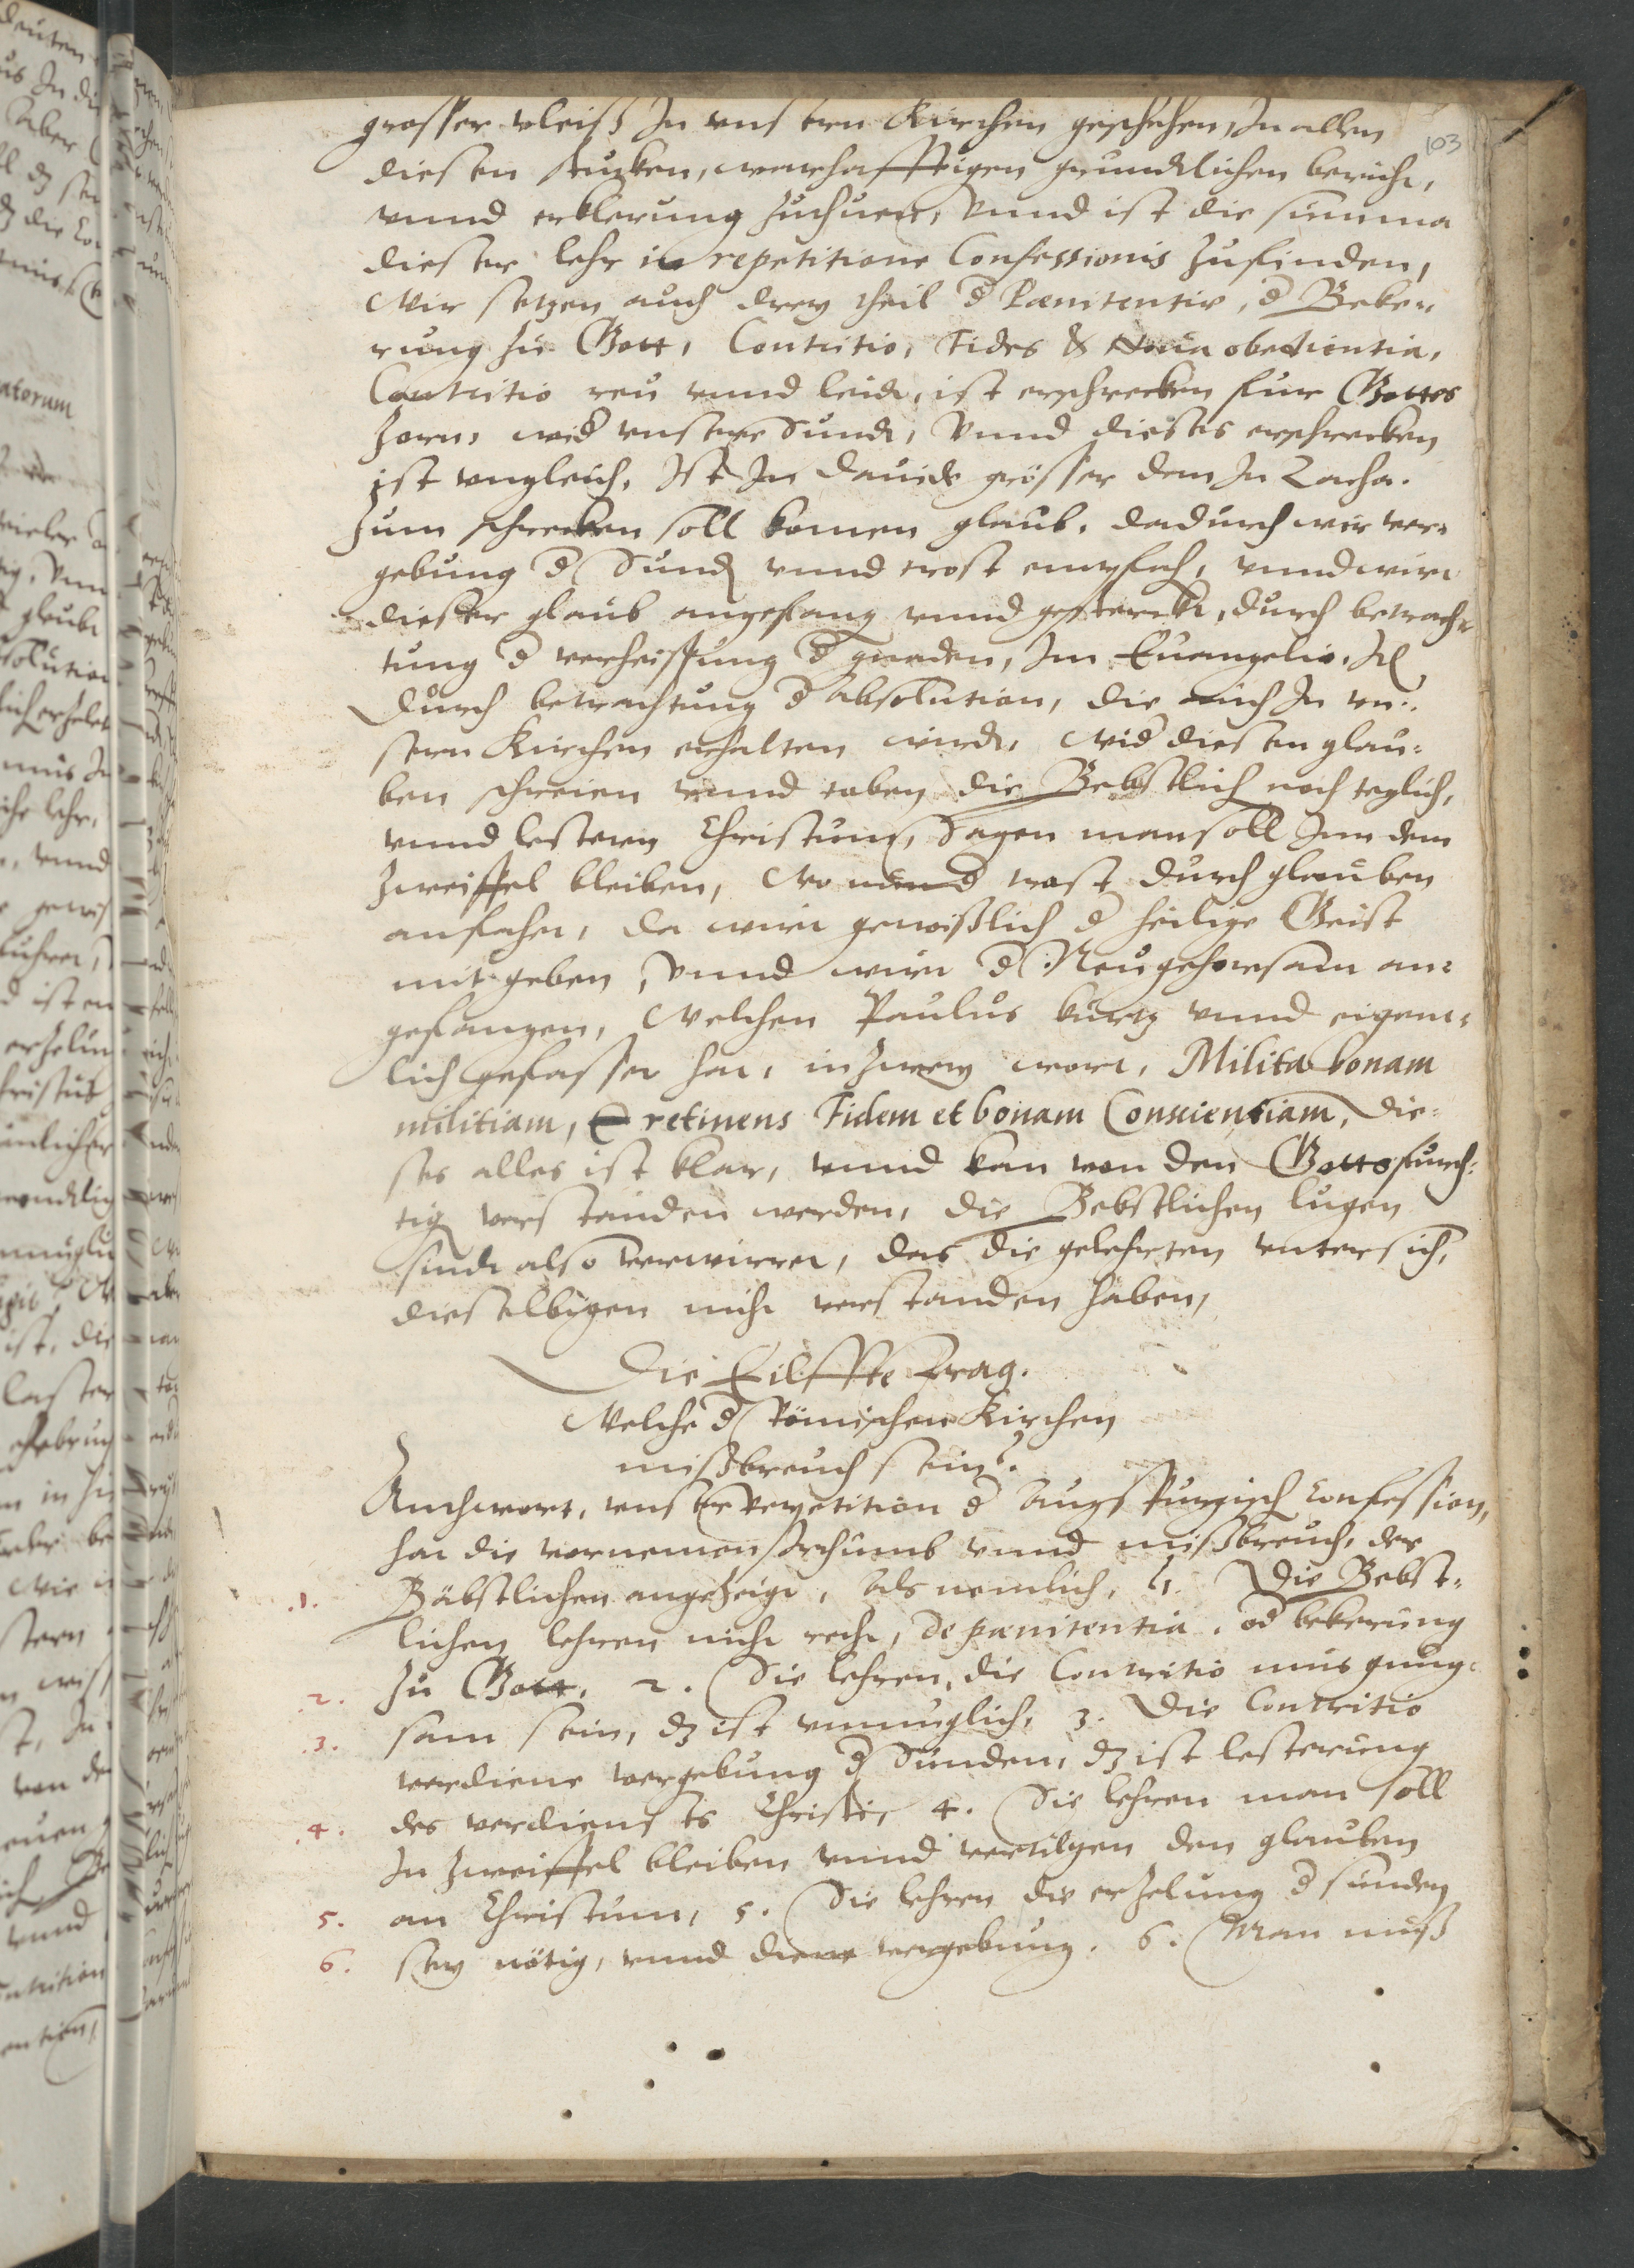 103
grosser vleiß In vnsern Kirchen geschehen, In allen
diesen stucken, warhafftigen grundtlichen bericht,
vnnd erklerung zuthuen, Vnnd ist die summa
dieser lehr in repetitione Confessionis zufinden,
Wir setzen auch drey theil d Pœnitentiæ, d Beke-
rung zu Gott, Contritio, Fides & Noua obedientia,
Contritio reu vnnd leidt, ist erschrecken fur Gottes
zorn, wid vnsere Sunde, Vnnd dieses erschrecken
ist vngleich, Ist In Dauide grösser den In Zachæ.
Zum schrecken soll komen glaub, dadurch wir ver-
gebung d Sund vnnd trost empfah, vnnd wirt
dieser glaub angefang vnnd gesterckt, durch betrach-
tung d verheissung d gnaden, Im Euangelio, Itē
durch betrachtung d Absolution, die auch In vn-
sern Kirchen erhalten wirdt, Wid diesen glau-
ben schreien vnnd toben die Bebstlich noch teglich,
vnnd lestern Christum, Sagen man soll Inn dem
Zweiffel bleiben, Wo nun d trost durch glauben
anfahet, da wirt gewißlich d heilige Geist
mit geben, Vnnd wirt d Neu gehorsam an-
gefangen, Welchen Paulus kurtz vnnd eigent-
lich gefasset hat, in zwey wort, Milita bonam
militiam, & retinens Fidem et bonam Conscientiam, Die-
ses alles ist klar, vnnd kan von den Gottsfurch-
tig verstanden werden, die Bebstlichen lugen
sindt also verwirret, das die gelehrten vnter sich,
dieselbigen nicht verstanden haben,
Die Eilffte Frag.
Welche d Römischen Kirchen
mißbreuch sein?
Anthwort, vnser repetition d Augspurgisch Confession,
hat die vornemen Irthumb vnnd mißbreuch, der
.1. Bäbstlichen angezeigt, Als nemlich, 1. Die Bebst-
lichen lehren nicht recht, de pœnitentia, od bekerung
2. zu Gott, 2. Sie lehren, die Contritio mus gnug-
.3. sam sein, dz ist vnmuglich, 3. Die Contritio
verdiene vergebung d Sunden, dz ist lesterung
.4. des verdiensts Christi, 4. Sie lehren man soll
In zweiffel bleiben vnnd vertilgen den glauben
5. an Christum, 5. Sie lehren die erzelung d sunden
6. sey nötig, vnnd diene vergebung. 6. Man muß